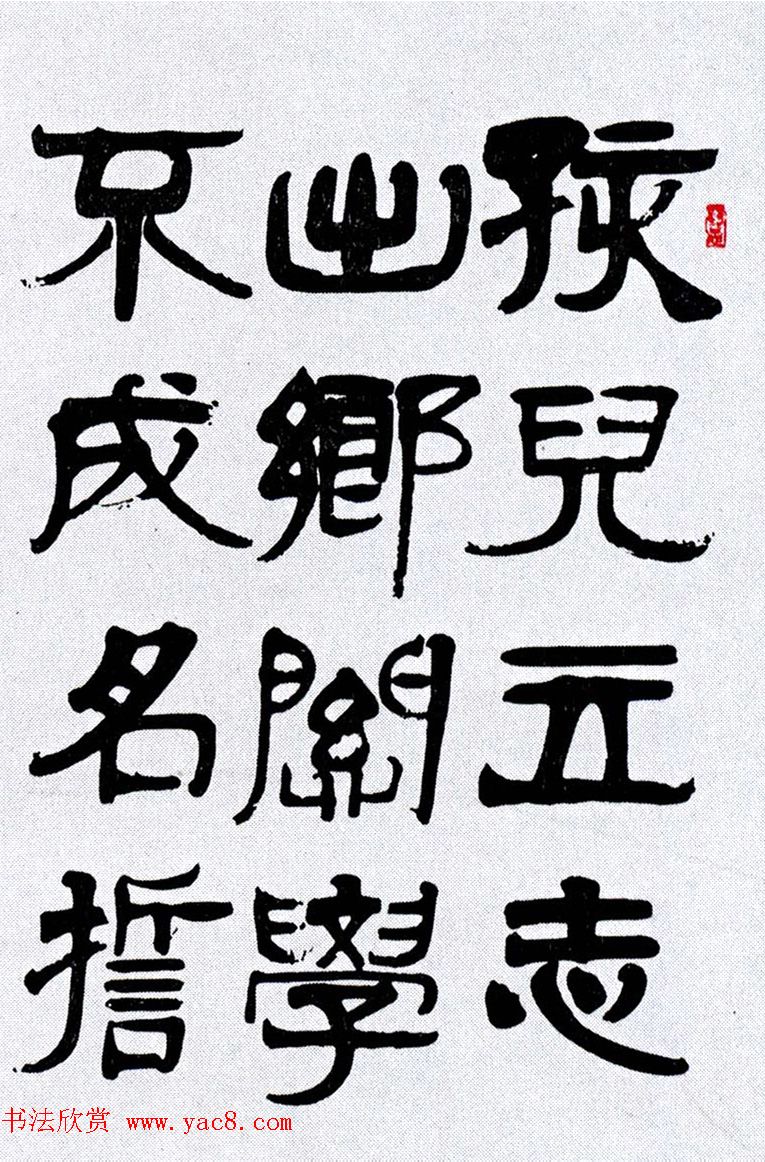 孩兒立志
出鄉關學
不成名誓
书法欣赏 www.yac8.com